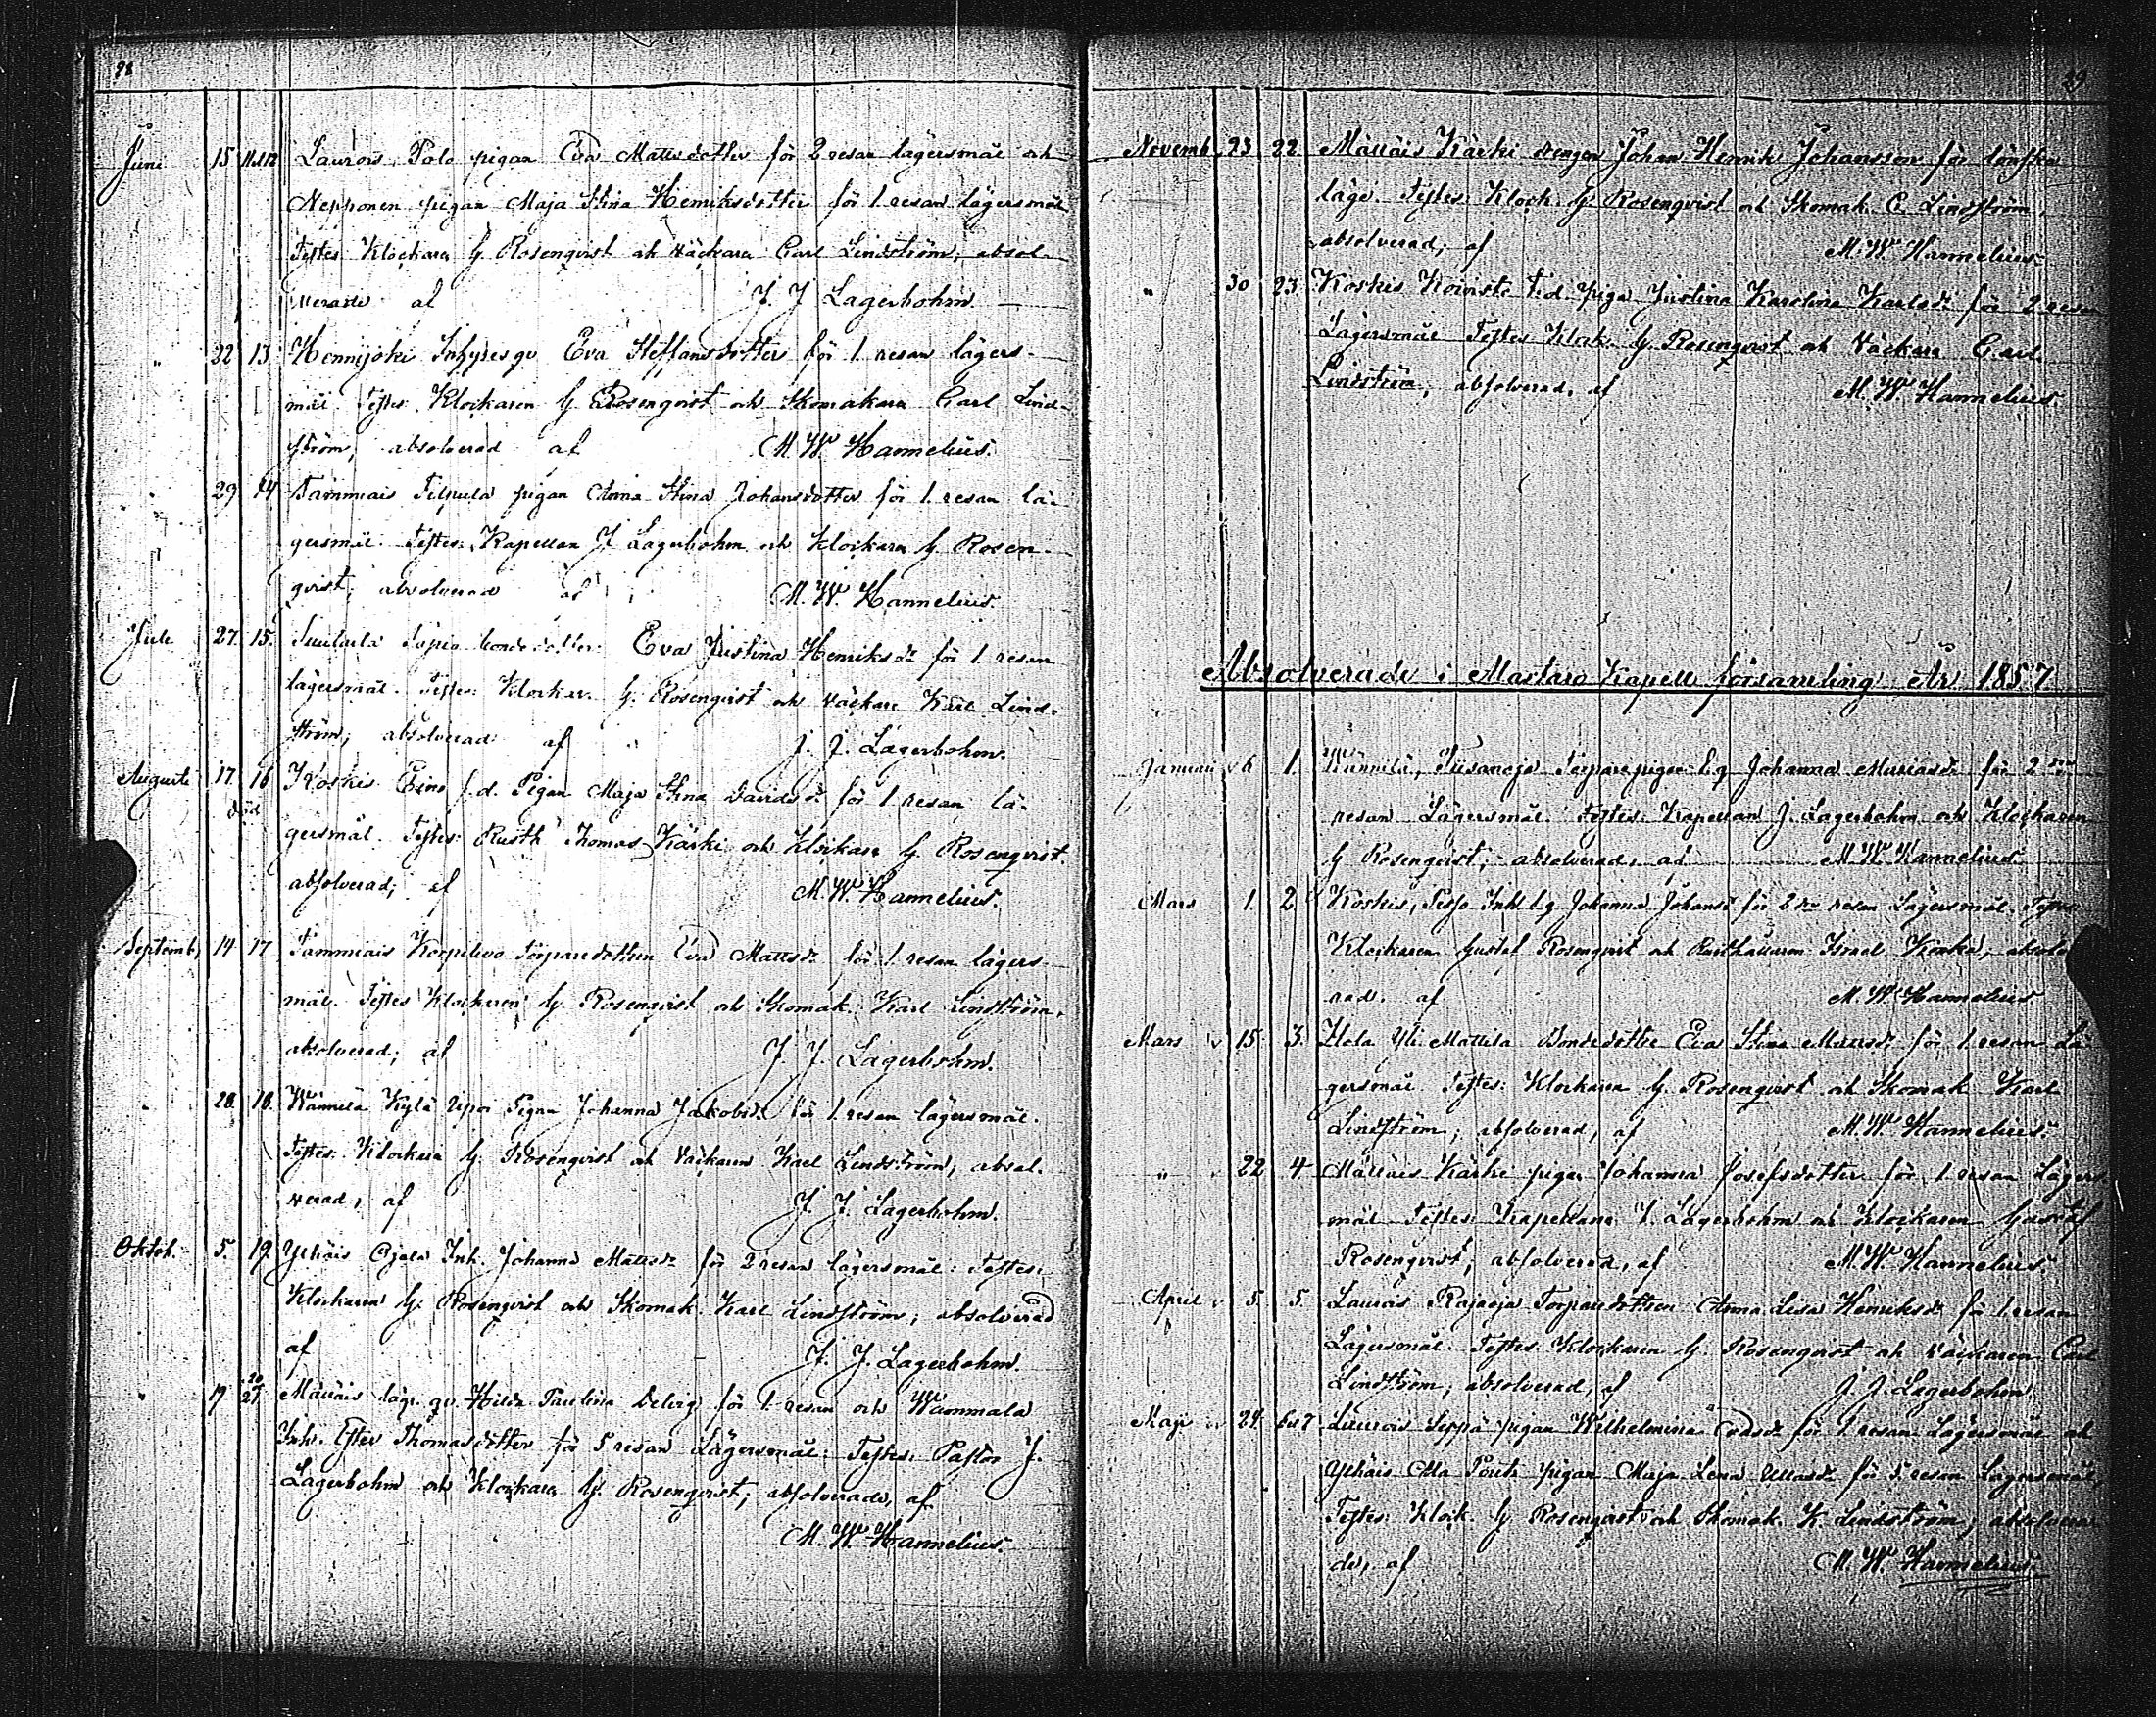 28
Juni 15 11 o 12 Laurois Palo pigan Eva Mattsdotter för 2 resan lägersmål och
Nepponen pigan Maja Stina Henriksdotter för 1 resan lägersmål
Testes Klockaren G. Rosenqvist och Väckaren Carl Lindström, absol-
verade af J. J. Lagerbohm.
" 22 13. Hennijoki Inhyses qv. Eva Steffansdotter för 1. resan lägers-
mål. Testes Klockaren G Rosenqvist och Skomakaren Carl Lind-
ström, absolverad af M. W. Hannelius.
" 29 14 Tammiais Pilpula pigan Anna Stina Johansdotter för 1. resan lä-
gersmål. Testes: Kapellan J Lagerbohm och Klockaren G. Rosen-
qvist, absolverad af M. W. Hannelius.
Juli 27. 15. Suutarla Sapio bondedotter Eva Justina Henriksdr för 1 resan
lägersmål. Testes: Klockar. G. Rosenqvist och Väckare Karl Lind-
ström; absolverad af J. J. Lagerbohm.
Augusti 17 16 Koskis Eino f.d. Pigan Maja Stina Davidsdr för 1 resan lä-
död
gersmål. Testes: Rusth. Thomas Kärki och Klockare G Rosenqvist
absolverad; af M. W. Hannelius.
Septemb. 14 17 Tammiais Korpilevo Torparedottren Eva Mattsdr för 1. resan lägers-
mål. Testes Klockaren G. Rosenqvist och Skomak. Karl Lindström,
absolverad; af J. J. Lagerbohm.
" 28. 18. Wännilä Kylä Pigan Johanna Jakobsdr för 1. resan lägersmål.
Testes: Klockare G. Rosenqvist och Väckaren Karl Lindström, absol-
verad, af J. J. Lagerbohm.
Oktob. 5. 19. Ylhäis Ojala Inh. Johanna Mattsdr för 2 resan lägersmål: Testes:
Klockaren G. Rosenqvist och Skomak. Karl Lindström; absolverad
af J. J. Lagerbohm.
" 19 20 21 Mälläis qv. Hilda Paulina för 1. resan och Wammala
Inh. Ester Thomasdotter för 5 resan Lägersmål: Testes. Pastor J.
Lagerbohm och Klockaren G. Rosenqvist; absolverade, af
M. W. Hannelius.
29
Novemb. 23 22 Mälläis Kärki drengen Johan Henrik Johansson för lönska
läge. Testes Klock. G. Rosenqvist och Skomak. C. Lindström,
absolverad; af M. W. Hannelius.
" 30 23 Koskis Koivisto f.d. piga Justina Karolina Karlsdr för 2 resan
Lägersmål Testes Klock. G. Rosenqvist och Väckare Carl
Lindström; absolverad, af M. W. Hannelius
Absolverade i Mastaro Kapells församling År 1857.
Januari 6 1. Wännilä, Tiisanoja Torparepigan l.q. Johanna Mattsdr för 2
resan Lägersmål. Testes: Kapellan J. Lagerbohm och Klockaren
G Rosenqvist; absolverad, af M. W. Hannelius
Mars 1. 2 Koskis, Inhs l.q Johanna Johansdr för 2 resan Lägersmål. Testes
Klockaren Gustaf Rosenqvist och Rusthållaren Israel absolve
rad. af M. W. Hannelius
Mars 15. 3. Hola Yli Mattila Bondedotter Eva Stina Mattsdr för 1 resan Lä
gersmål Testes: Klockaren G. Rosenqvist och Skomak Karl
Lindström; absolverad, af M. W. Hannelius.
" 22 4 Mälläis Kärki pigan Johanna Josefsdotter för 1 resan Lägers
mål Testes: Kapellan J. Lagerbohm och Klockaren Gustaf
Rosenqvist; absolverad, af M. W. Hannelius
April 5. 5. Laurois Rajaoja Torparedottren Anna Lisa Henriksdr för 1. resan
Lägersmål. Testes Klockaren G. Rosenqvist och Väckaren Carl
Lindström; absolverad, af J. J. Lagerbohm
Maji 24. 6 o 7 Laurois Seppä pigan Wilhelmina för 1 resan Lägersmål och
Ylhäis pigan Maja Lena för 5. resan Lägersmål,
Testes Klock. G Rosenqvist och Skomak. K. Lindström; absolvera
de, af M. W. Hannelius.